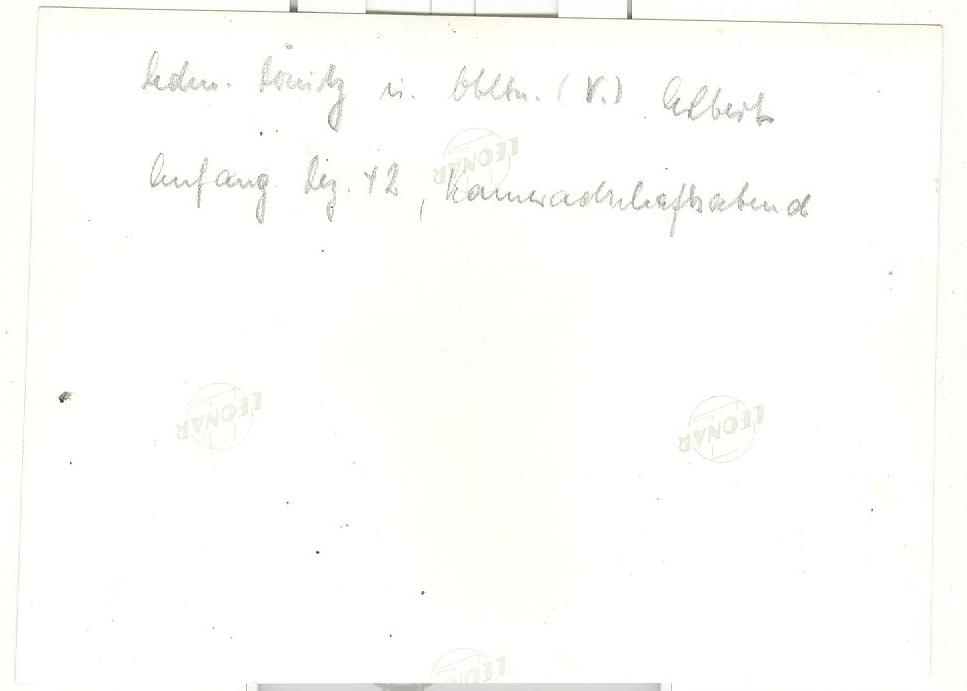 Adm. Dönitz u. Obltn. (V.) Albert
LEONAR
Anfang Dez. 42, Kameradschaftsabend
LEONAR
LEONAR
LEONAR